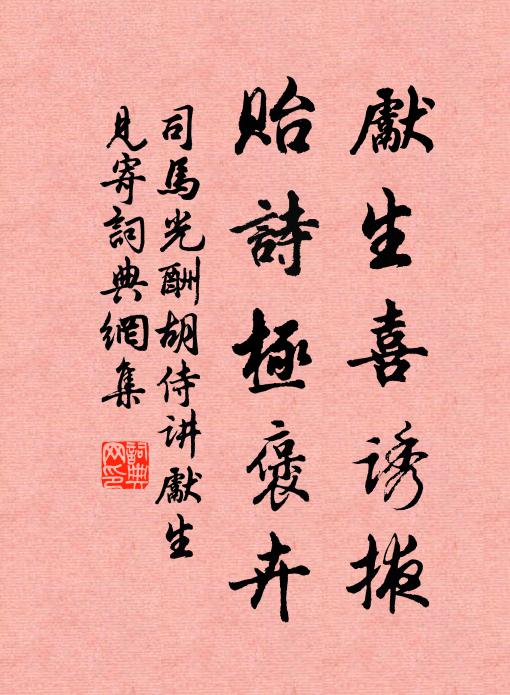 獻生喜誘掖
貽詩極褒卉
司馬光酬胡侍讲獻生
見寄詞典網集
詞典
网印